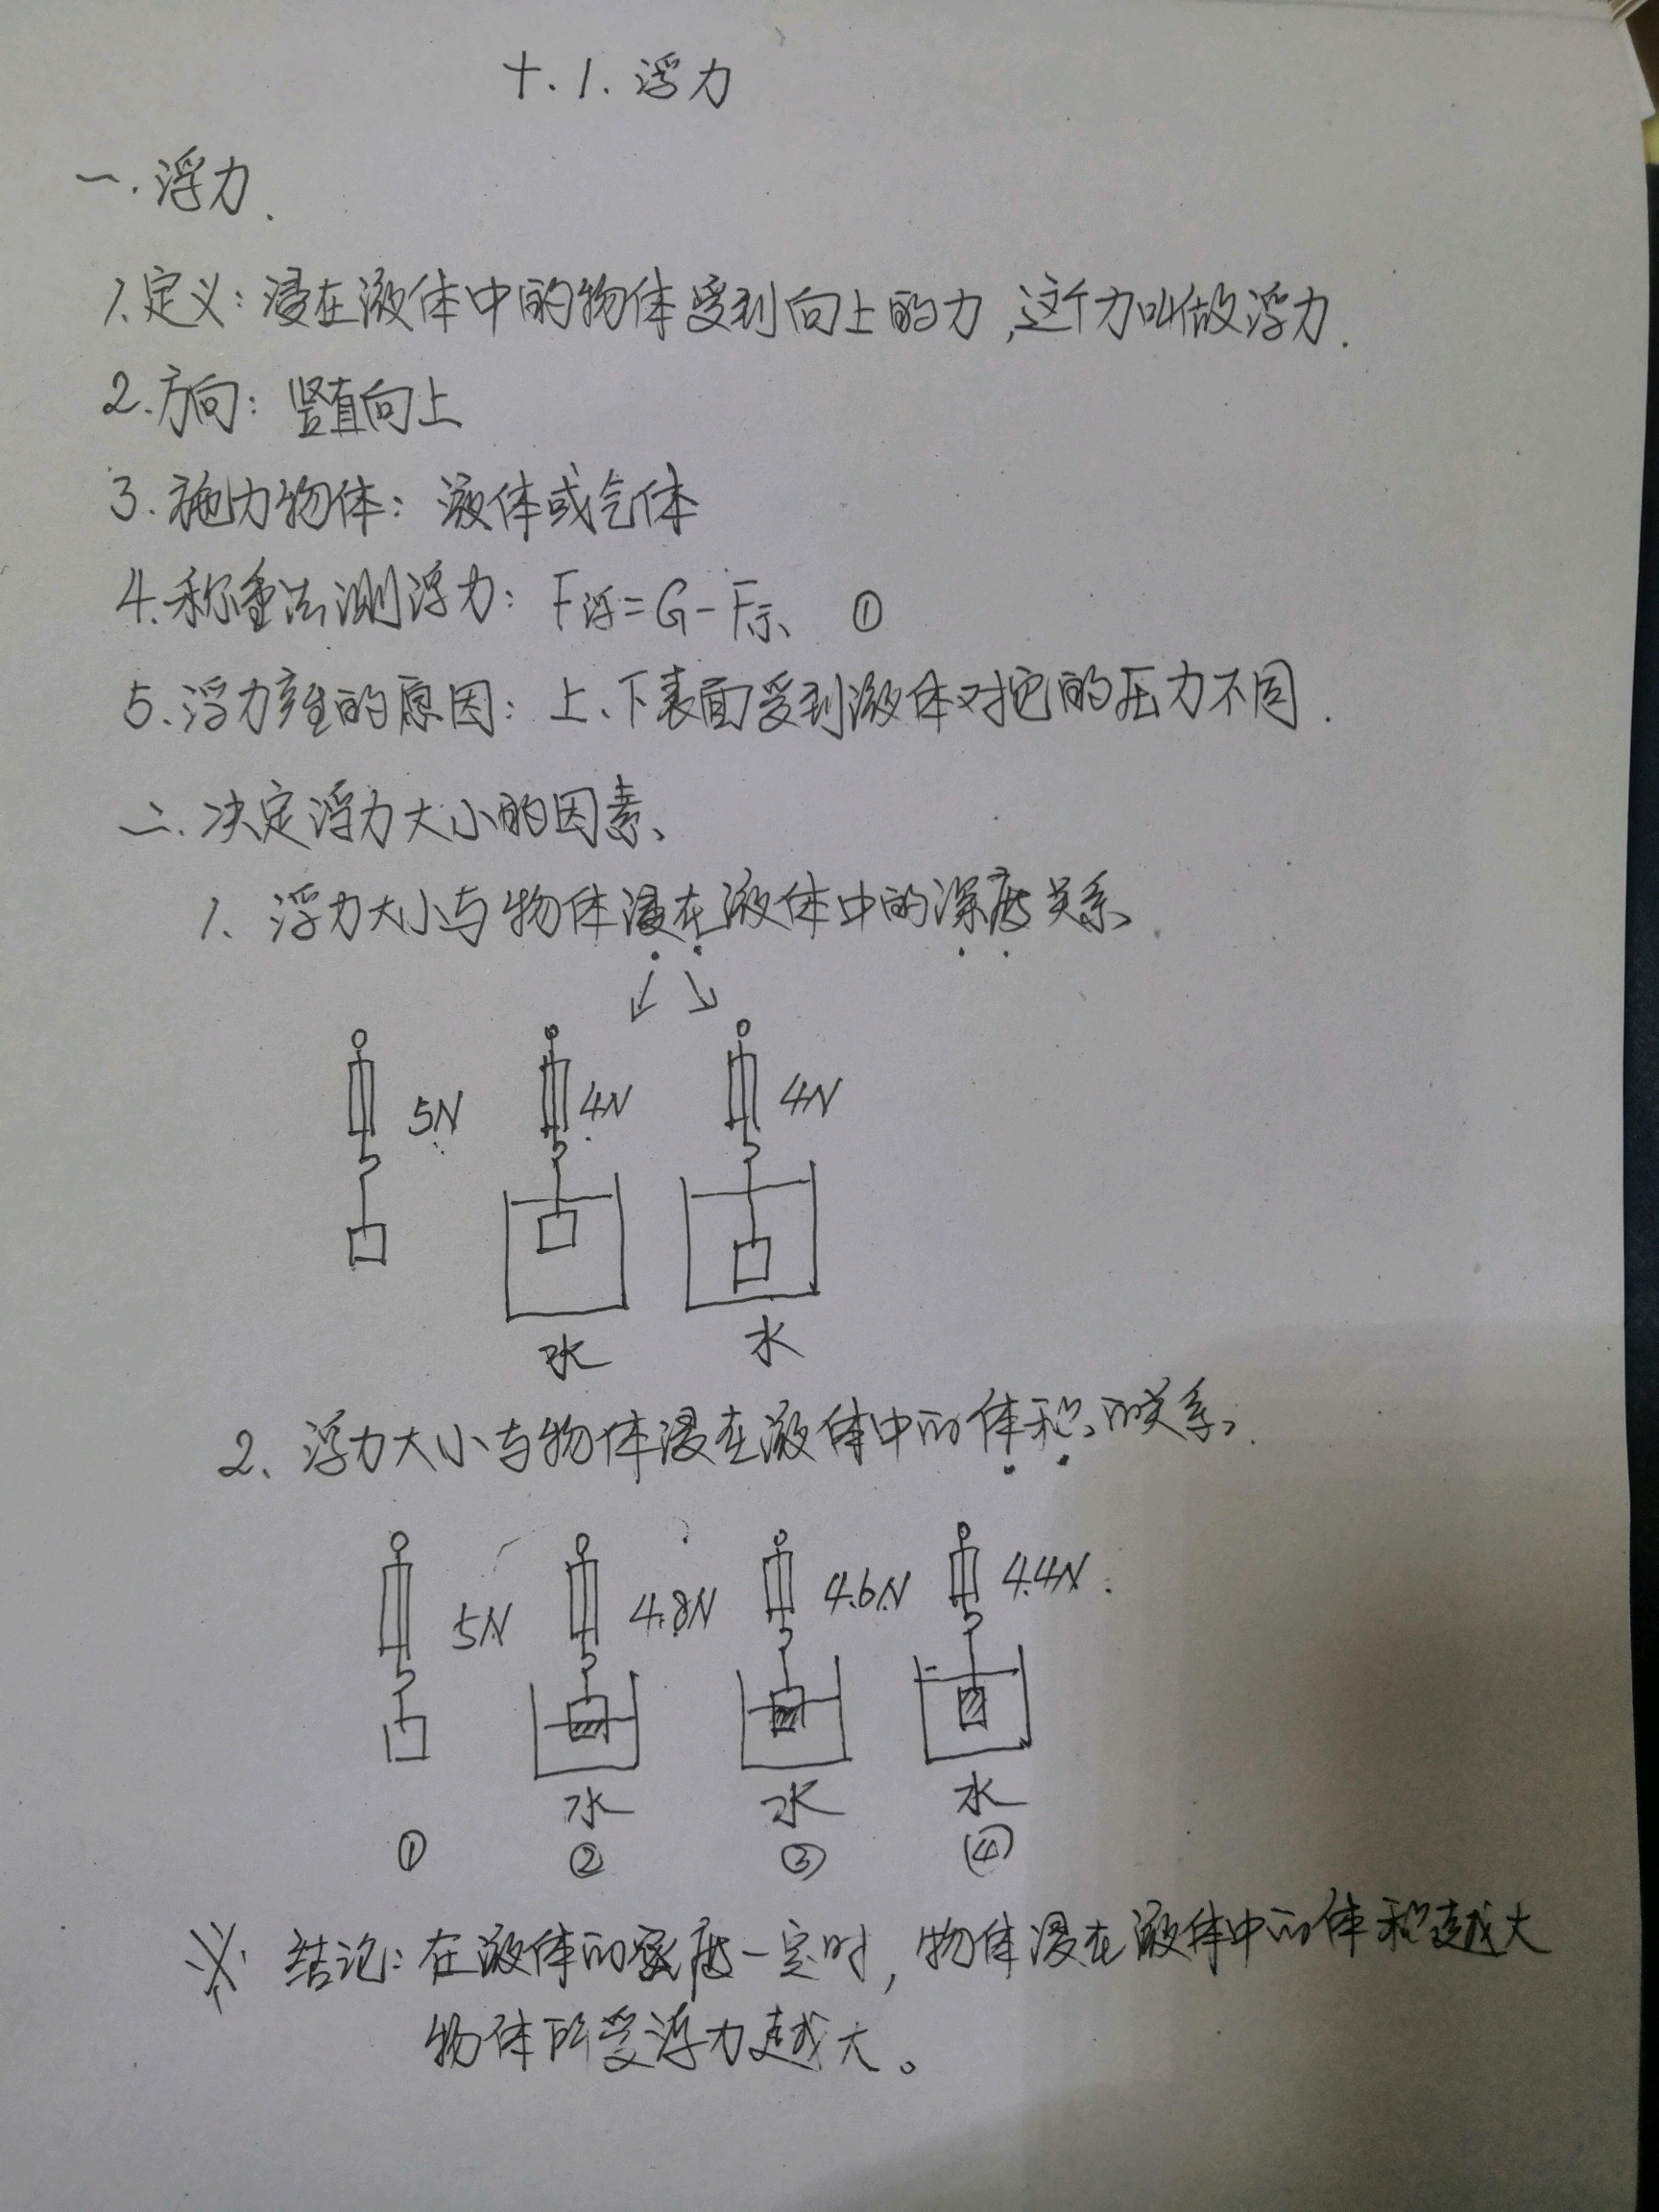 十.1.浮力
一.浮力.
1.定义:浸在液体中的物体受到向上的力,这个力叫做浮力.
2.方向:竖直向上
3.施力物体:液体或气体
4.称重法测浮力:F浮=G-F示、 ①
5.浮力产生的原因:上、下表面受到液体对它的压力不同.
二.决定浮力大小的因素、
1、浮力大小与物体浸在液体中的深度关系、
↙ ↘
5N 4N 4N
水 水
2、浮力大小与物体浸在液体中的体积的关系、
5N 4.8N 4.6N 4.4N.
水 水 水
① ② ③ ④
※ 结论:在液体的密度一定时,物体浸在液体中的体积越大
物体所受浮力越大。